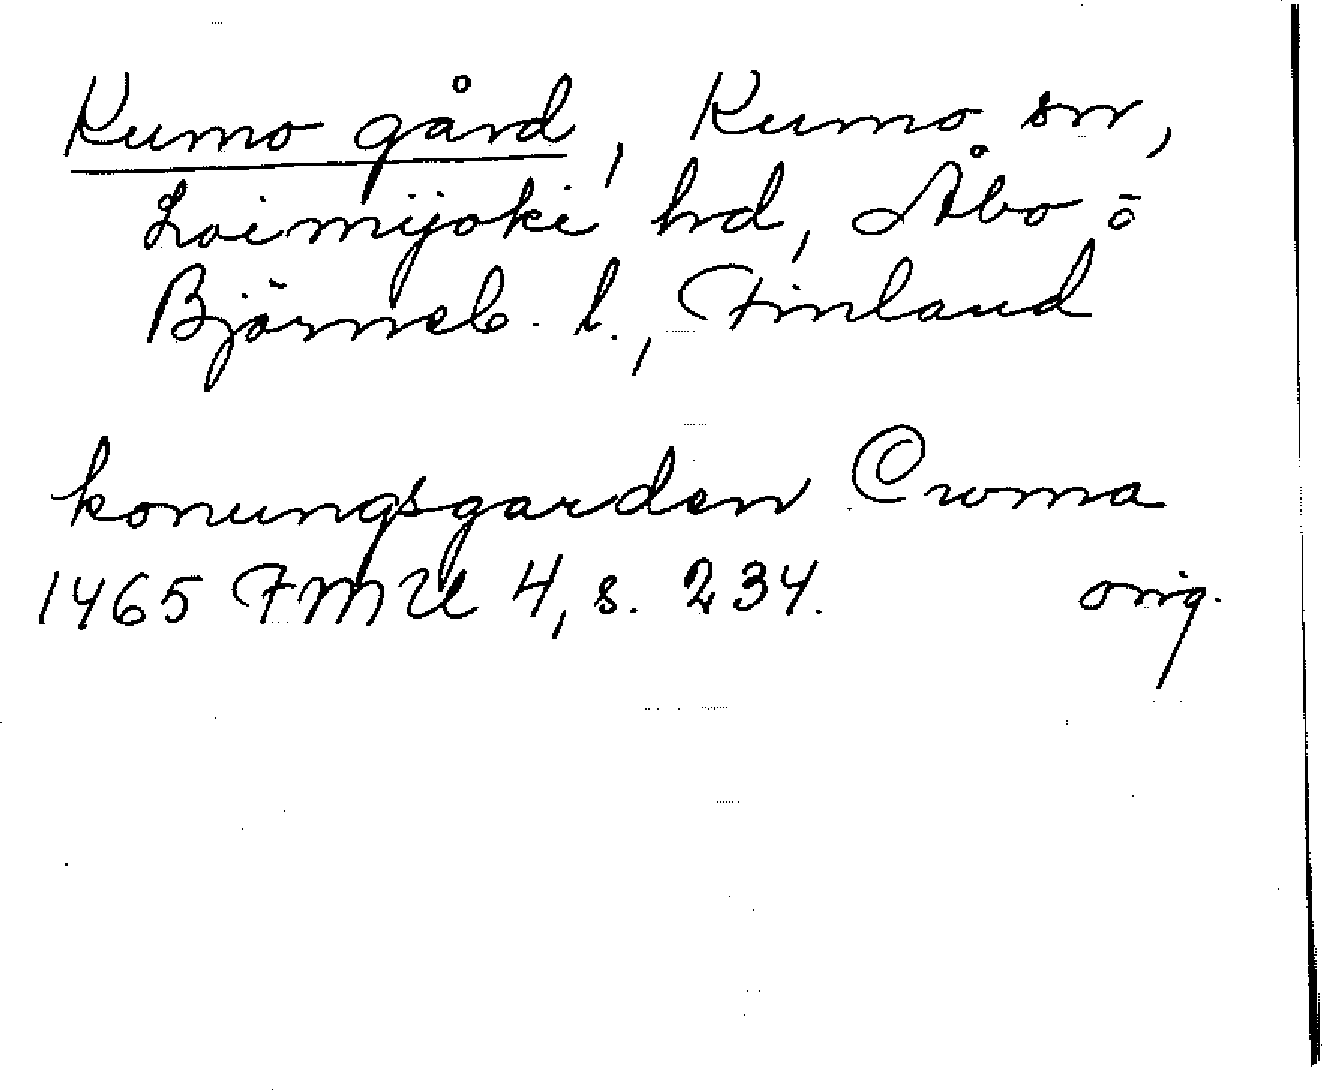 Kumo gård, Kumo sn,
Loimijoki hd, Åbo o
Björneb. l., Finland
konungsgarden Cwma
1465 FMU 4, s. 234. orig.